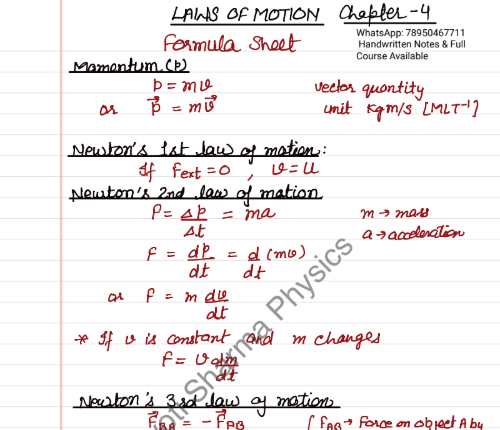 LAWS OF MOTION Chapter-4
WhatsApp: 78950467711
Handwritten Notes & Full
Course Available
Formula Sheet
Momentum (p)
p = mv vector quantity
or p⃗ = mv⃗ unit Kgm/s [MLT⁻¹]
Newton's 1st law of motion:
If Fext = 0 , v = u
Newton's 2nd law of motion
F = Δp/Δt = ma m → mass
a → acceleration
F = dp/dt = d/dt (mv)
or F = m dv/dt
* If v is constant and m changes
F = v dm/dt
Newton's 3rd law of motion
F⃗BA = - F⃗AB [ FAB → Force on object A by
Sharma Physics